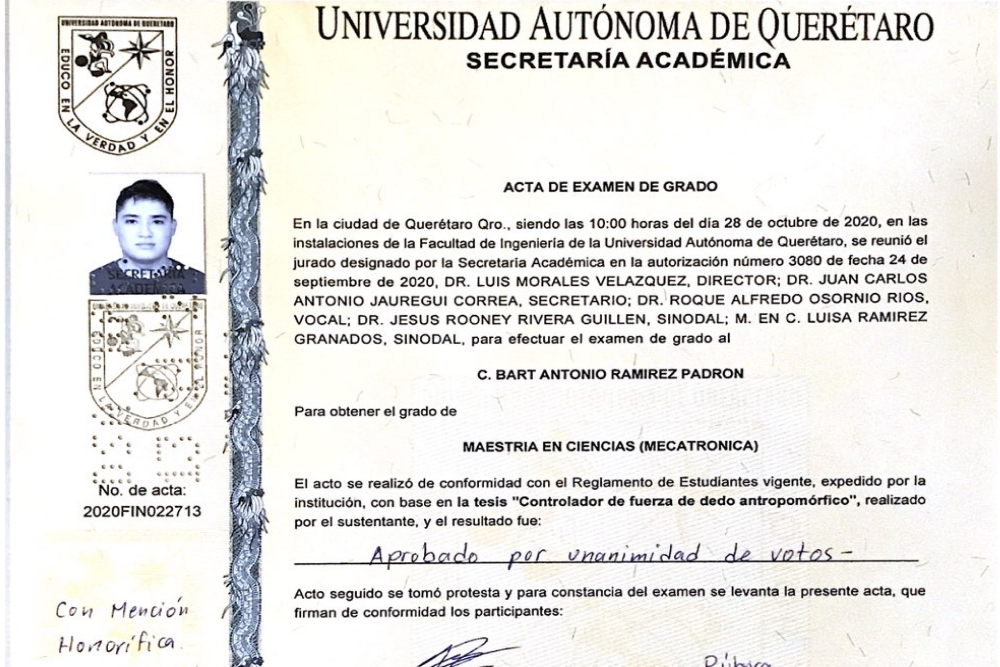 UNIVERSIDAD AUTÓNOMA DE QUERÉTARO
SECRETARÍA ACADÉMICA
UNIVERSIDAD AUTONOMA DE QUERETARO
EDUCO EN LA VERDAD Y EN EL HONOR
SECRETARIA
ACADEMICA
EDUCO EN LA VERDAD Y EN EL HONOR
No. de acta:
2020FIN022713
Con Mención
Honorífica.
ACTA DE EXAMEN DE GRADO
En la ciudad de Querétaro Qro., siendo las 10:00 horas del día 28 de octubre de 2020, en las
instalaciones de la Facultad de Ingeniería de la Universidad Autónoma de Querétaro, se reunió el
jurado designado por la Secretaria Académica en la autorización número 3080 de fecha 24 de
septiembre de 2020, DR. LUIS MORALES VELAZQUEZ, DIRECTOR; DR. JUAN CARLOS
ANTONIO JAUREGUI CORREA, SECRETARIO; DR. ROQUE ALFREDO OSORNIO RIOS,
VOCAL; DR. JESUS ROONEY RIVERA GUILLEN, SINODAL; M. EN C. LUISA RAMIREZ
GRANADOS, SINODAL, para efectuar el examen de grado al
C. BART ANTONIO RAMIREZ PADRON
Para obtener el grado de
MAESTRIA EN CIENCIAS (MECATRONICA)
El acto se realizó de conformidad con el Reglamento de Estudiantes vigente, expedido por la
institución, con base en la tesis "Controlador de fuerza de dedo antropomórfico", realizado
por el sustentante, y el resultado fue:
Aprobado por unanimidad de votos-
Acto seguido se tomó protesta y para constancia del examen se levanta la presente acta, que
firman de conformidad los participantes: